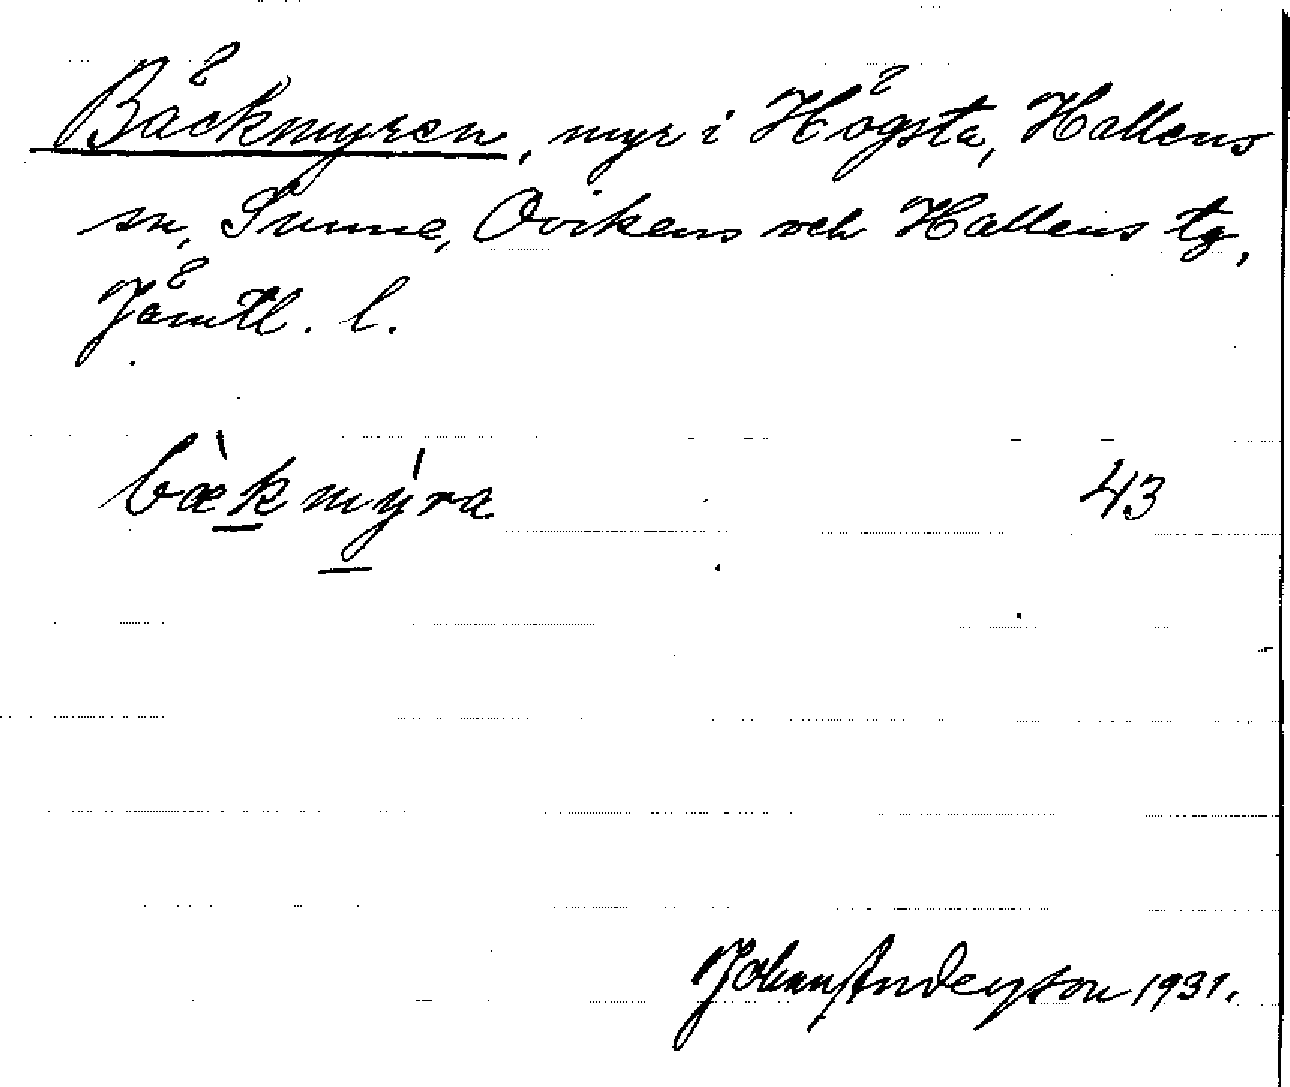 Bäckmyren, myr i Högsta, Hallens
sn, Sunne, Ovikens och Hallens tg,
Jämtl. l.
bæ̀kmýra 43
Johan Anderson 1931.